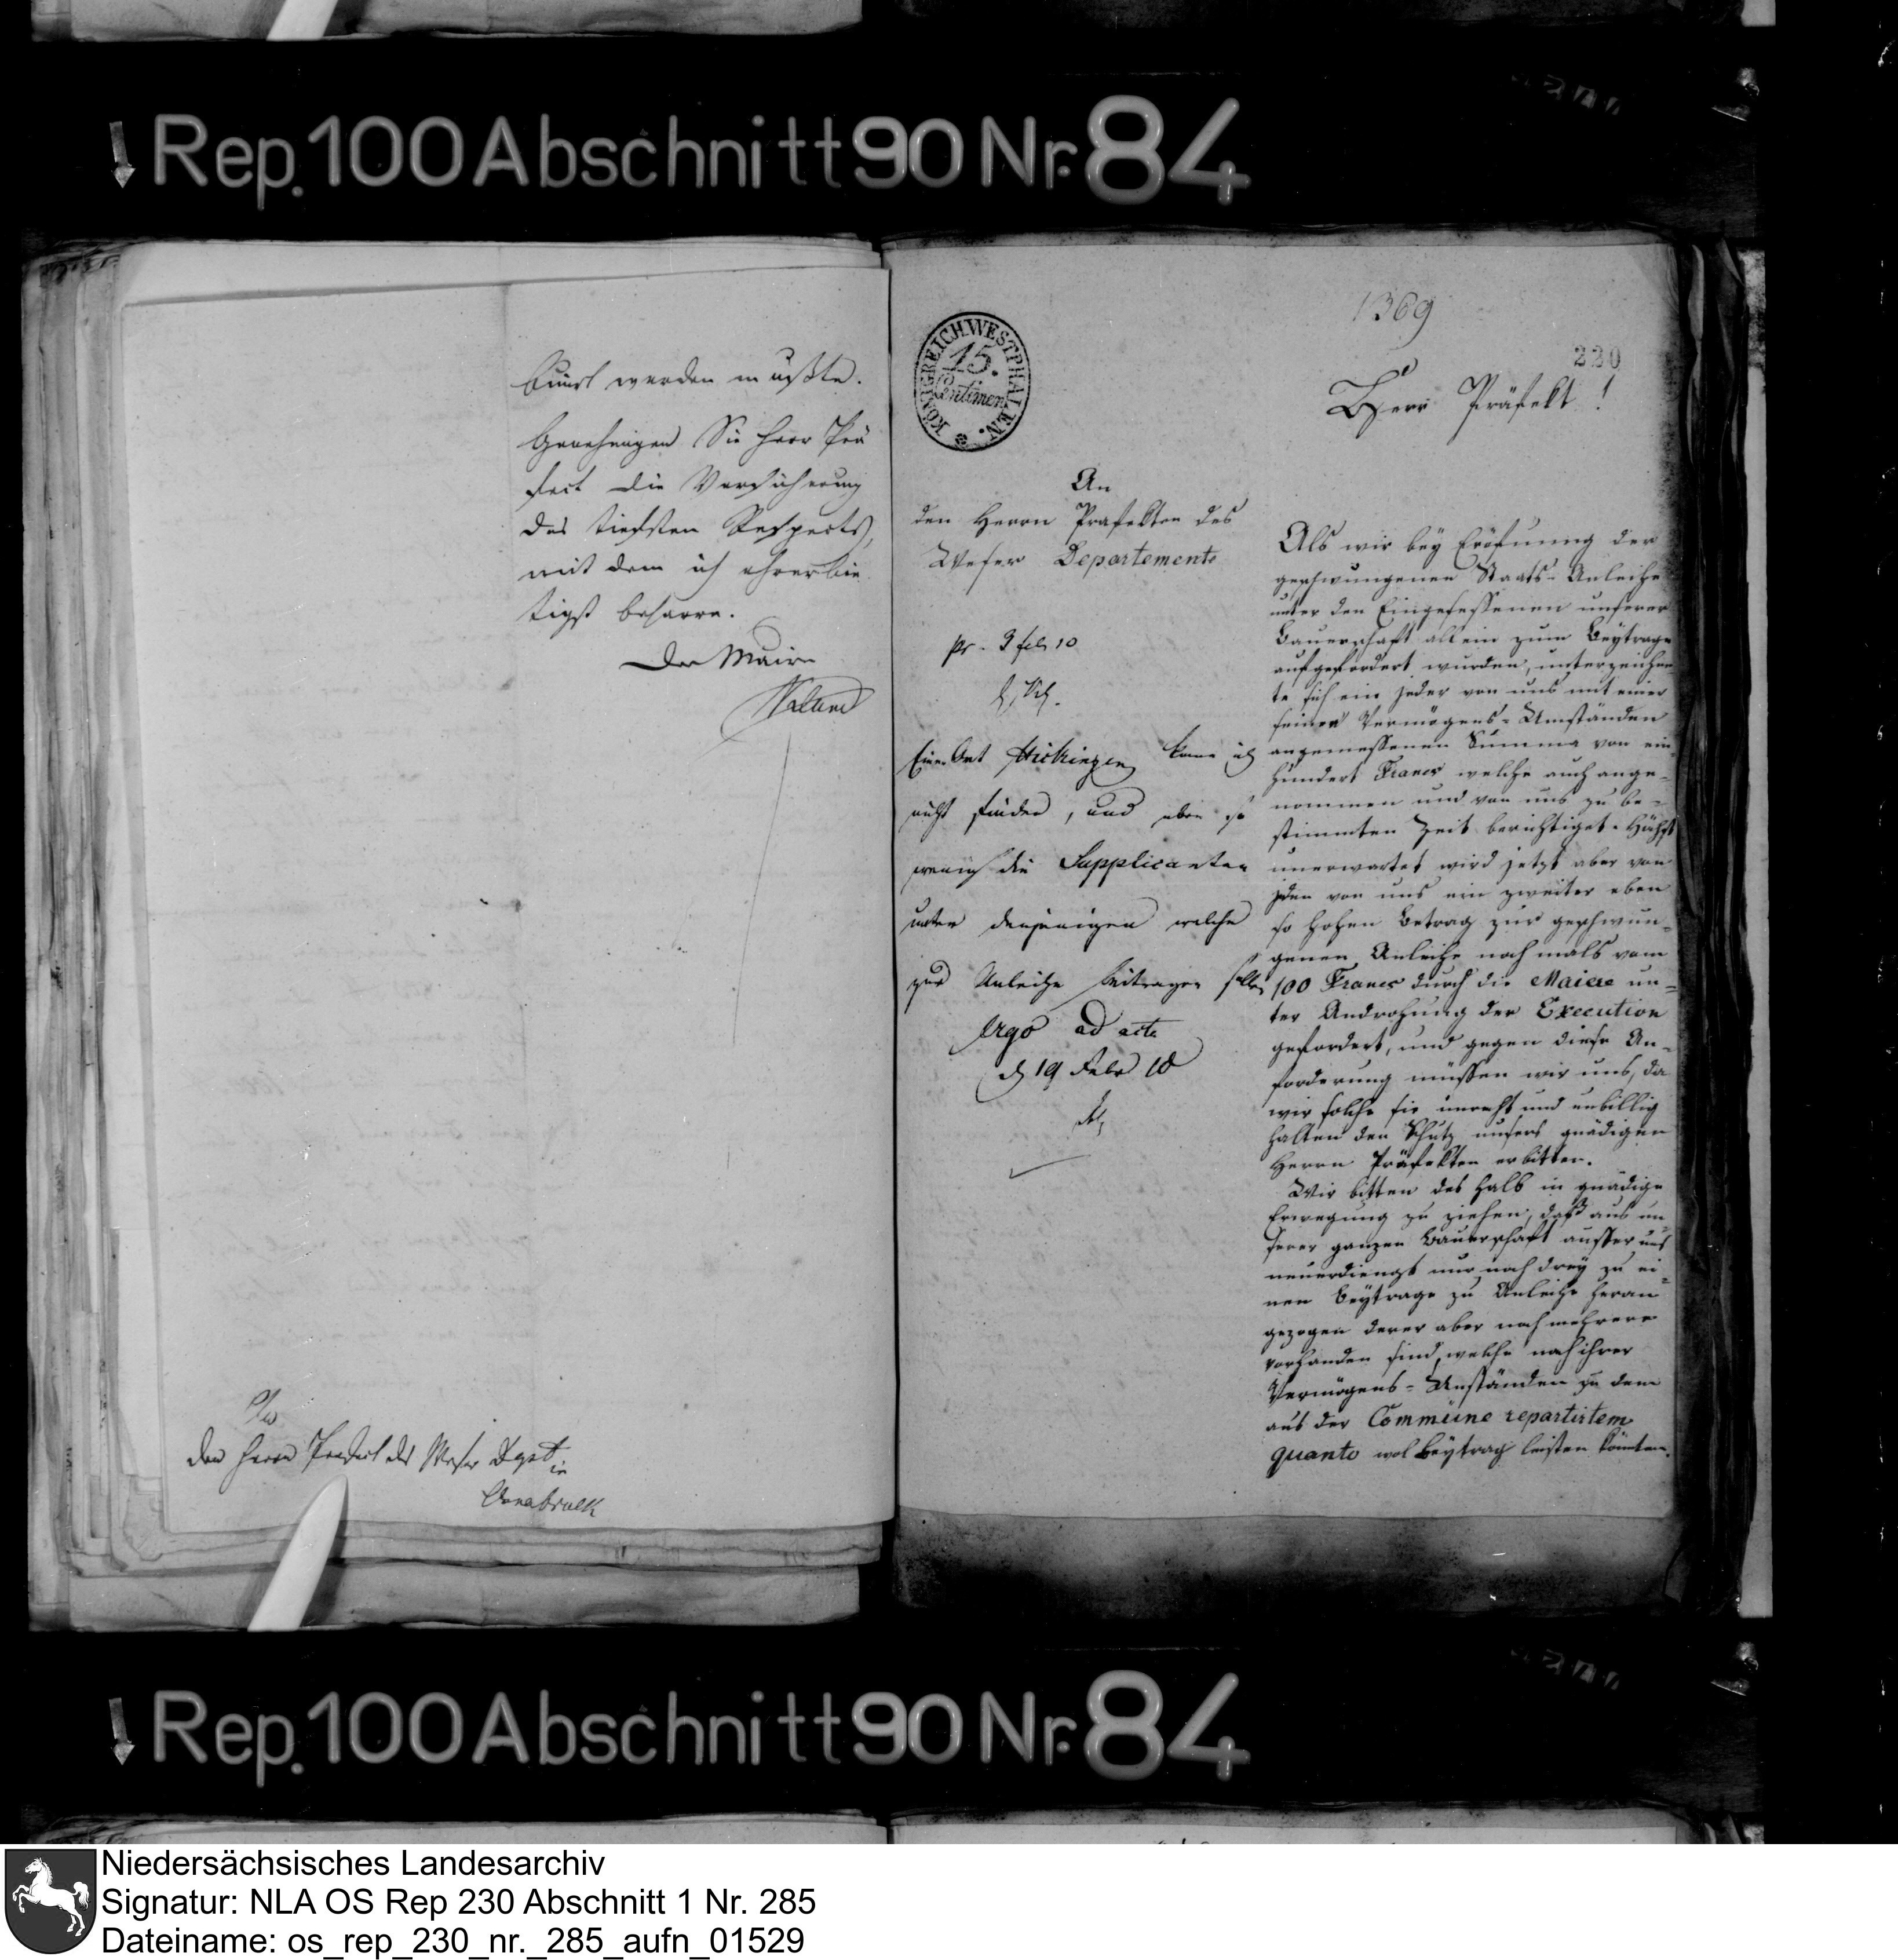 Rep. 100 Abschnitt 90 Nr. 84
buirt werden müßte.
Genehmigen Sie Herr Prä
fect die Versicherung
des tiefsten Respects,
mit dem ich ehrerbie
tigst beharre.
Der Maire
An
den Herrn Prefect des Weser Dept in
Osnabrück
KÖNIGREICH WESTPHALEN.
15.
Centimen
1369
220
Herr Präfekt!
An
den Herrn Präfekten des
Weser Departements
pr. 3 feb 10
Einen Ort Hickingen kann ich
nicht finden, und eben so
wenig die Supplicanten
unter denjenigen welche
zur Anleihe beitragen sollen
Ergo ad acta
d 19 Febr 10
Als wir bey Eröfnung der
gezwungenen Staats-Anleihe
unter den Eingesessenen unserer
Bauerschaft allein zum Beytrage
aufgefordert wurden, unterzeichne
te sich ein jeder von uns mit einer
seinen Vermögens-Umständen
angemessenen Summa von ein
hundert Francs welche auch ange-
nommen und von uns zu be-
stimmten Zeit berichtiget. Höchst
unerwartet wird jetzt aber von
jeden von uns ein zweiter eben
so hohen Betrag zur gezwun-
genen Anleihe nochmals vom
100 Francs durch die Maiere un-
ter Androhung der Execution
gefordert, und gegen diese An-
forderung müssen wir uns, da
wir solche für unrecht und unbillig
halten den Schutz unsers gnädigen
Herrn Präfekten erbitten.
Wir bitten des halb in gnädige
Erwegung zu ziehen, daß aus un
serer ganzen Bauerschaft ausser uns
neuerdiengst nur noch drey zu ei-
nen Beytrage zu Anleihe heran
gezogen derer aber noch mehrere
vorhanden sind, welche nach ihrer
Vermögens-Umständen zu dem
aus der Commüne repartirtem
quanto wol Beytrag leisten könten.
Rep. 100 Abschnitt 90 Nr. 84
Niedersächsisches Landesarchiv
Signatur: NLA OS Rep 230 Abschnitt 1 Nr. 285
Dateiname: os_rep_230_nr._285_aufn_01529